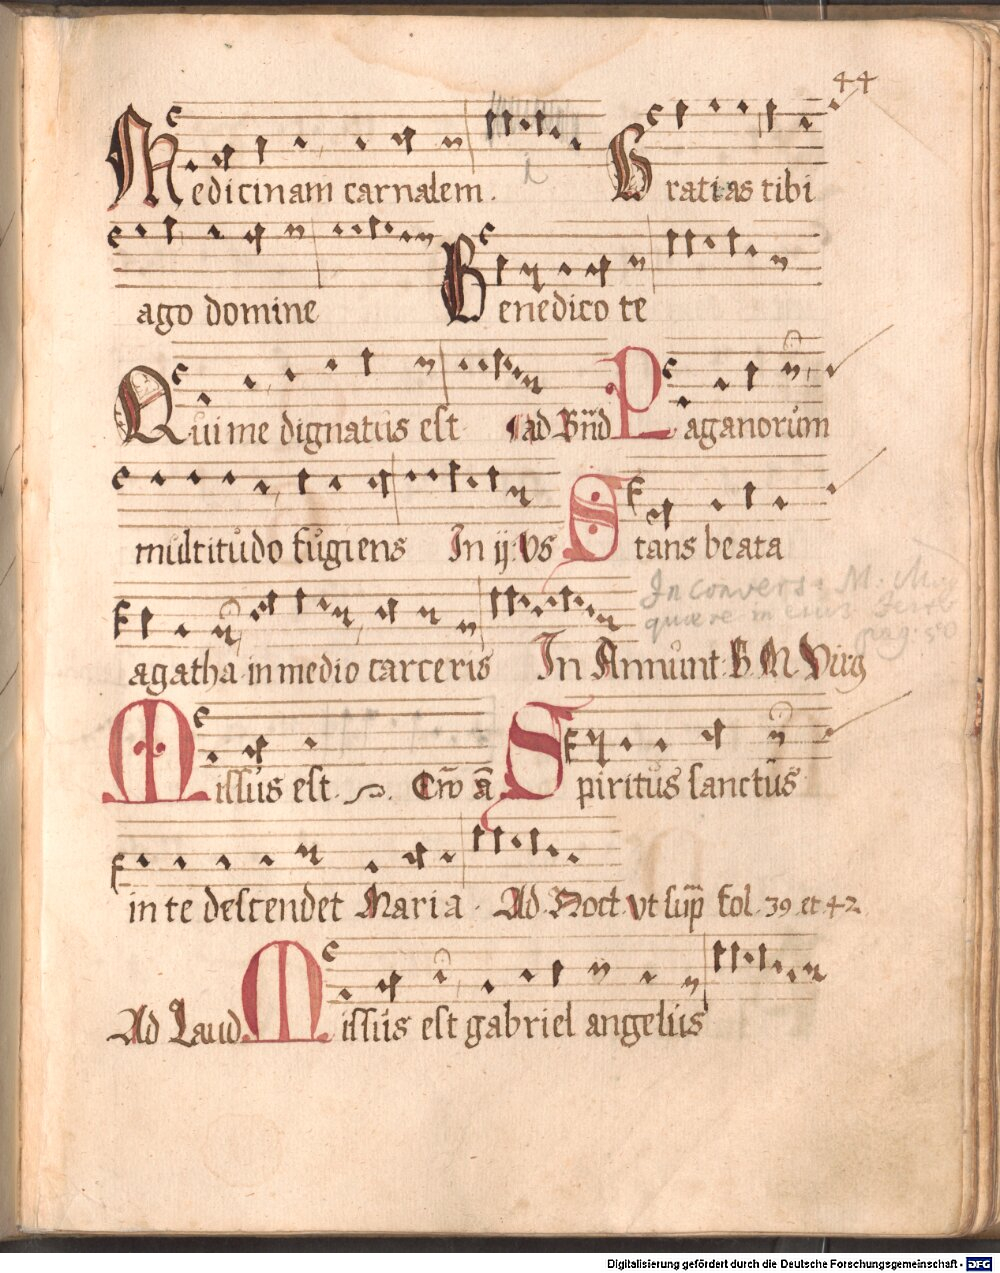 44
Medicinam carnalem. Gratias tibi
ago domine Benedico te
Qui me dignatus est ad Bñd Paganorum
multitudo fugiens In ij. Vs Stans beata
In convers. M.
quære in eius Festo
pag. 50
agatha in medio carceris In Annunt. B. M. Virg
Missus est Spiritus sanctus
in te descendet Maria. Ad Noct. vt sup fol. 39 et 42
Ad Laud Missus est gabriel angelus
Digitalisierung gefördert durch die Deutsche Forschungsgemeinschaft - DFG